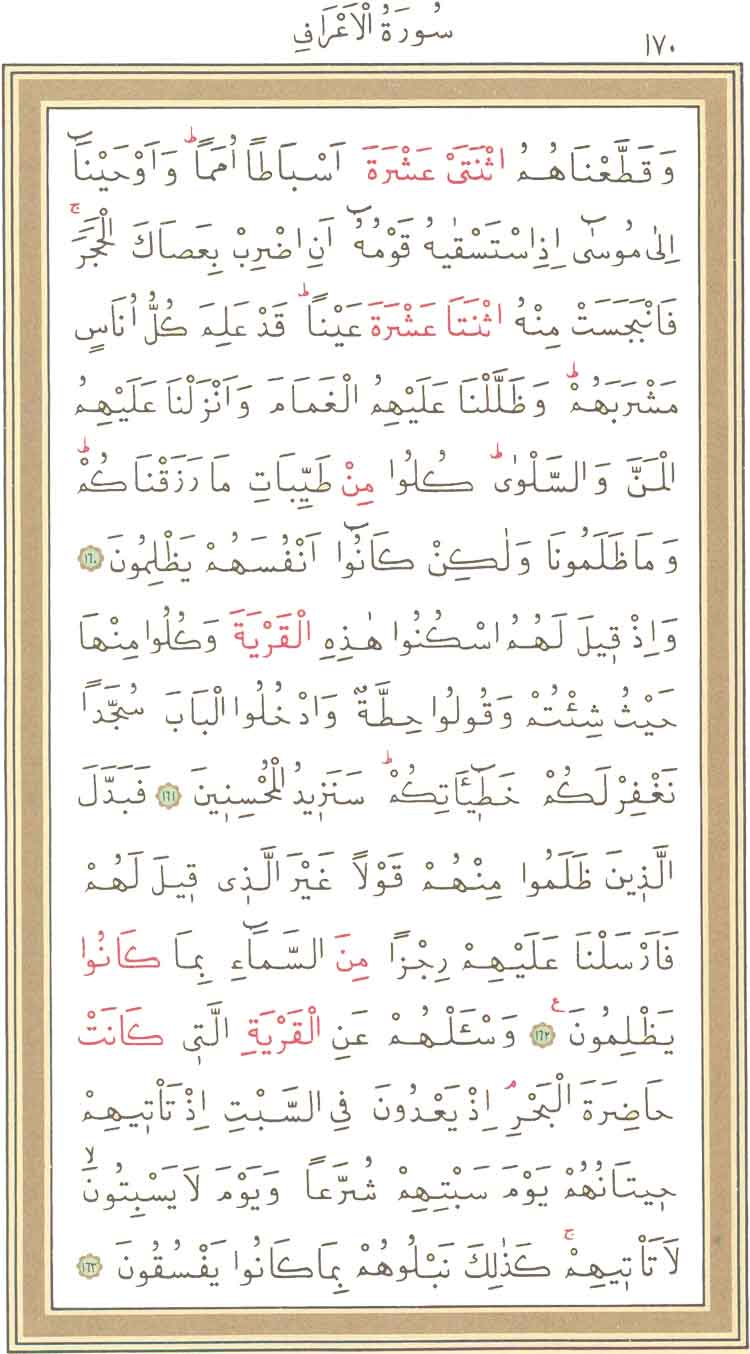 سُورَةُ الْاَعْرَافِ ١٧٠
وَقَطَّعْنَاهُمُ اثْنَتَىْ عَشْرَةَ اَسْبَاطًا اُمَمًاۜ وَاَوْحَيْنَٓا
اِلٰى مُوسٰٓى اِذِ اسْتَسْقٰيهُ قَوْمُهُٓ اَنِ اضْرِبْ بِعَصَاكَ الْحَجَرَۚ
فَانْبَجَسَتْ مِنْهُ اثْنَتَا عَشْرَةَ عَيْنًاۜ قَدْ عَلِمَ كُلُّ اُنَاسٍ
مَشْرَبَهُمْۜ وَظَلَّلْنَا عَلَيْهِمُ الْغَمَامَ وَاَنْزَلْنَا عَلَيْهِمُ
الْمَنَّ وَالسَّلْوٰىۜ كُلُوا مِنْ طَيِّبَاتِ مَا رَزَقْنَاكُمْۜ
وَمَا ظَلَمُونَا وَلٰكِنْ كَانُٓوا اَنْفُسَهُمْ يَظْلِمُونَ ١٦٠
وَاِذْ قٖيلَ لَهُمُ اسْكُنُوا هٰذِهِ الْقَرْيَةَ وَكُلُوا مِنْهَا
حَيْثُ شِئْتُمْ وَقُولُوا حِطَّةٌ وَادْخُلُوا الْبَابَ سُجَّدًا
نَغْفِرْ لَكُمْ خَطٖٓيـَٔاتِكُمْۜ سَنَزٖيدُ الْمُحْسِنٖينَ ١٦١ فَبَدَّلَ
الَّذٖينَ ظَلَمُوا مِنْهُمْ قَوْلًا غَيْرَ الَّذٖى قٖيلَ لَهُمْ
فَاَرْسَلْنَا عَلَيْهِمْ رِجْزًا مِنَ السَّمَٓاءِ بِمَا كَانُوا
يَظْلِمُونَ ع ١٦٢ وَسْـَٔلْهُمْ عَنِ الْقَرْيَةِ الَّتٖى كَانَتْ
حَاضِرَةَ الْبَحْرِۢ اِذْ يَعْدُونَ فِى السَّبْتِ اِذْ تَاْتٖيهِمْ
حٖيتَانُهُمْ يَوْمَ سَبْتِهِمْ شُرَّعًا وَيَوْمَ لَا يَسْبِتُونَۙ
لَا تَاْتٖيهِمْۚ كَذٰلِكَ نَبْلُوهُمْ بِمَا كَانُوا يَفْسُقُونَ ١٦٣